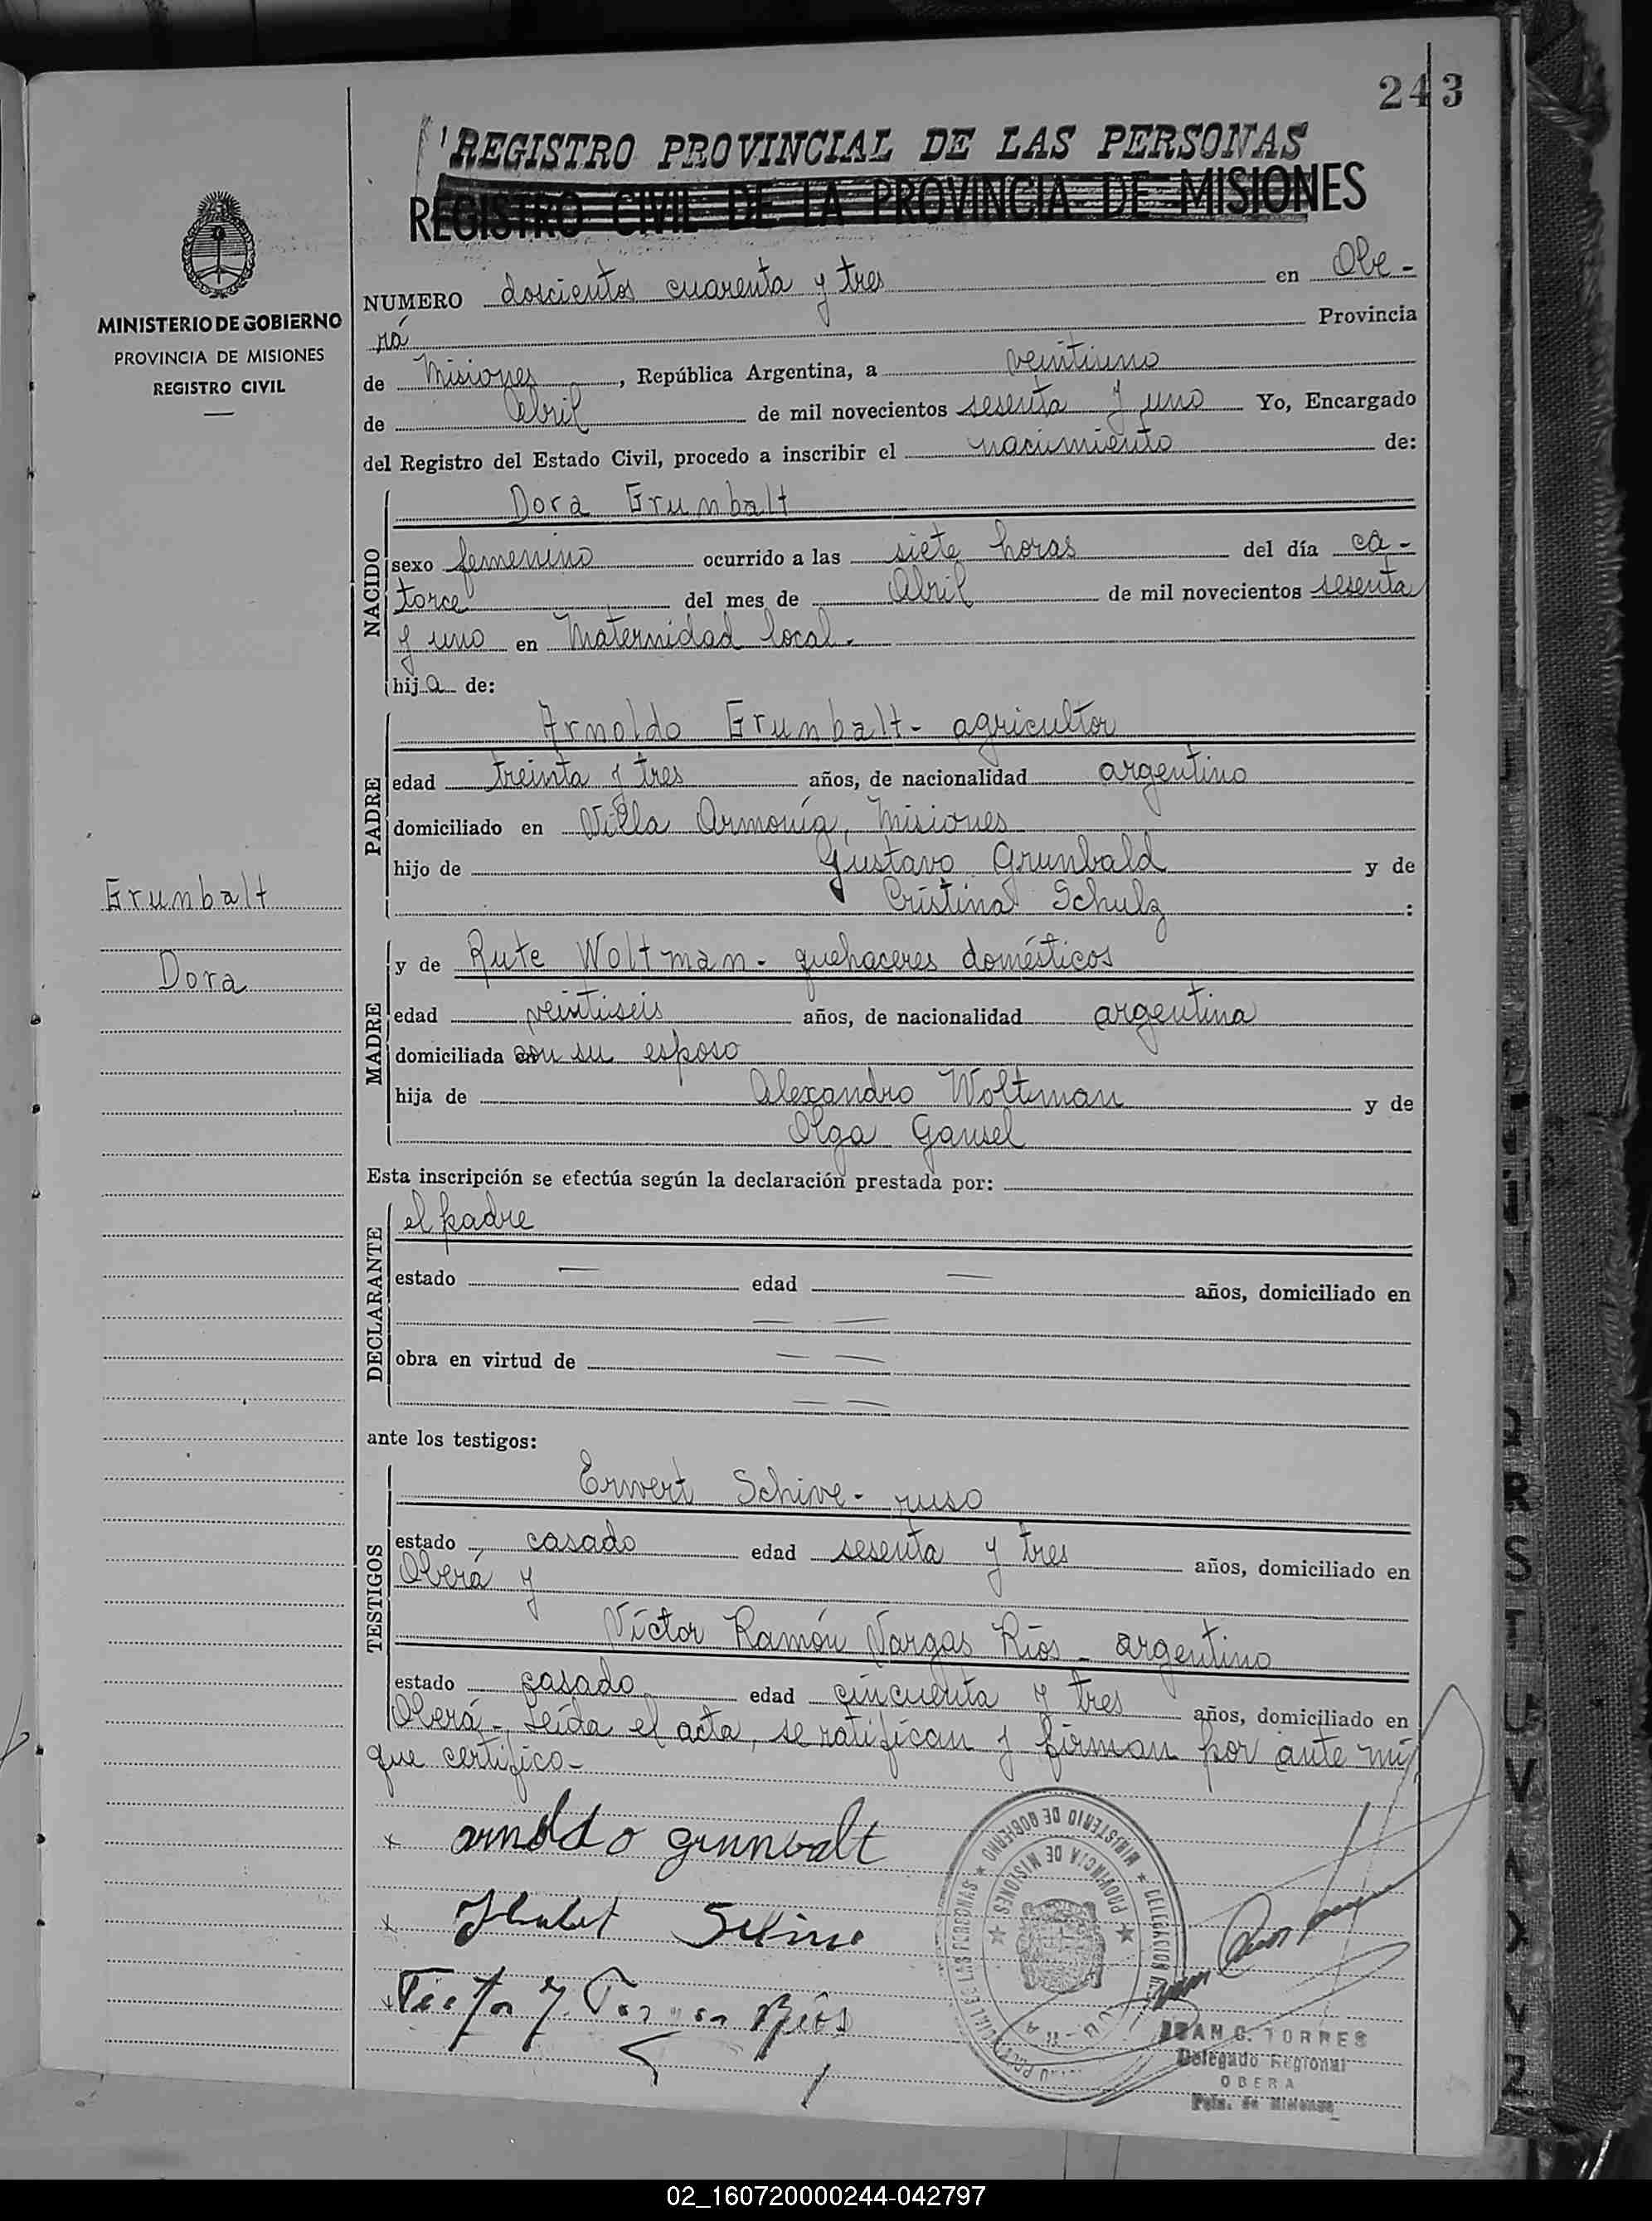 243
REGISTRO PROVINCIAL DE LAS PERSONAS
REGISTRO CIVIL DE LA PROVINCIA DE MISIONES
MINISTERIO DE GOBIERNO
PROVINCIA DE MISIONES
REGISTRO CIVIL
NUMERO doscientos cuarenta y tres en Obe-
rá Provincia
de Misiones, República Argentina, a veintiuno
de Abril de mil novecientos sesenta y uno Yo, Encargado
del Registro del Estado Civil, procedo a inscribir el nacimiento de:
NACIDO
Dora Grunbalt
sexo femenino ocurrido a las siete horas del día ca-
torce del mes de Abril de mil novecientos sesenta
y uno en Maternidad local.
hija de:
PADRE
Arnoldo Grunbalt- agricultor
edad treinta y tres años, de nacionalidad argentino
domiciliado en Villa Armonía, Misiones
hijo de Gustavo Grunbald y de
Cristina Schulz :
Grunbalt
Dora
MADRE
y de Rute Woltman- quehaceres domésticos
edad veintiseis años, de nacionalidad argentina
domiciliada con su esposo
hija de Alexandro Woltman y de
Olga Gansel
Esta inscripción se efectúa según la declaración prestada por:
DECLARANTE
el padre
estado — edad — años, domiciliado en
— —
obra en virtud de — —
— —
ante los testigos:
TESTIGOS
Erwert Schive- ruso
estado casado edad sesenta y tres años, domiciliado en
Oberá y
Víctor Ramón Vargas Ríos - argentino
estado casado edad cincuenta y tres años, domiciliado en
Oberá- Leída el acta, se ratifican y firman por ante mí
que certifico-
x arnoldo grunbalt
x
x Ríos
MINISTERIO DE GOBIERNO
PROVINCIA DE MISIONES
JUAN C. TORRES
Delegado Regional
OBERA
Pcia. de Misiones
02_160720000244-042797